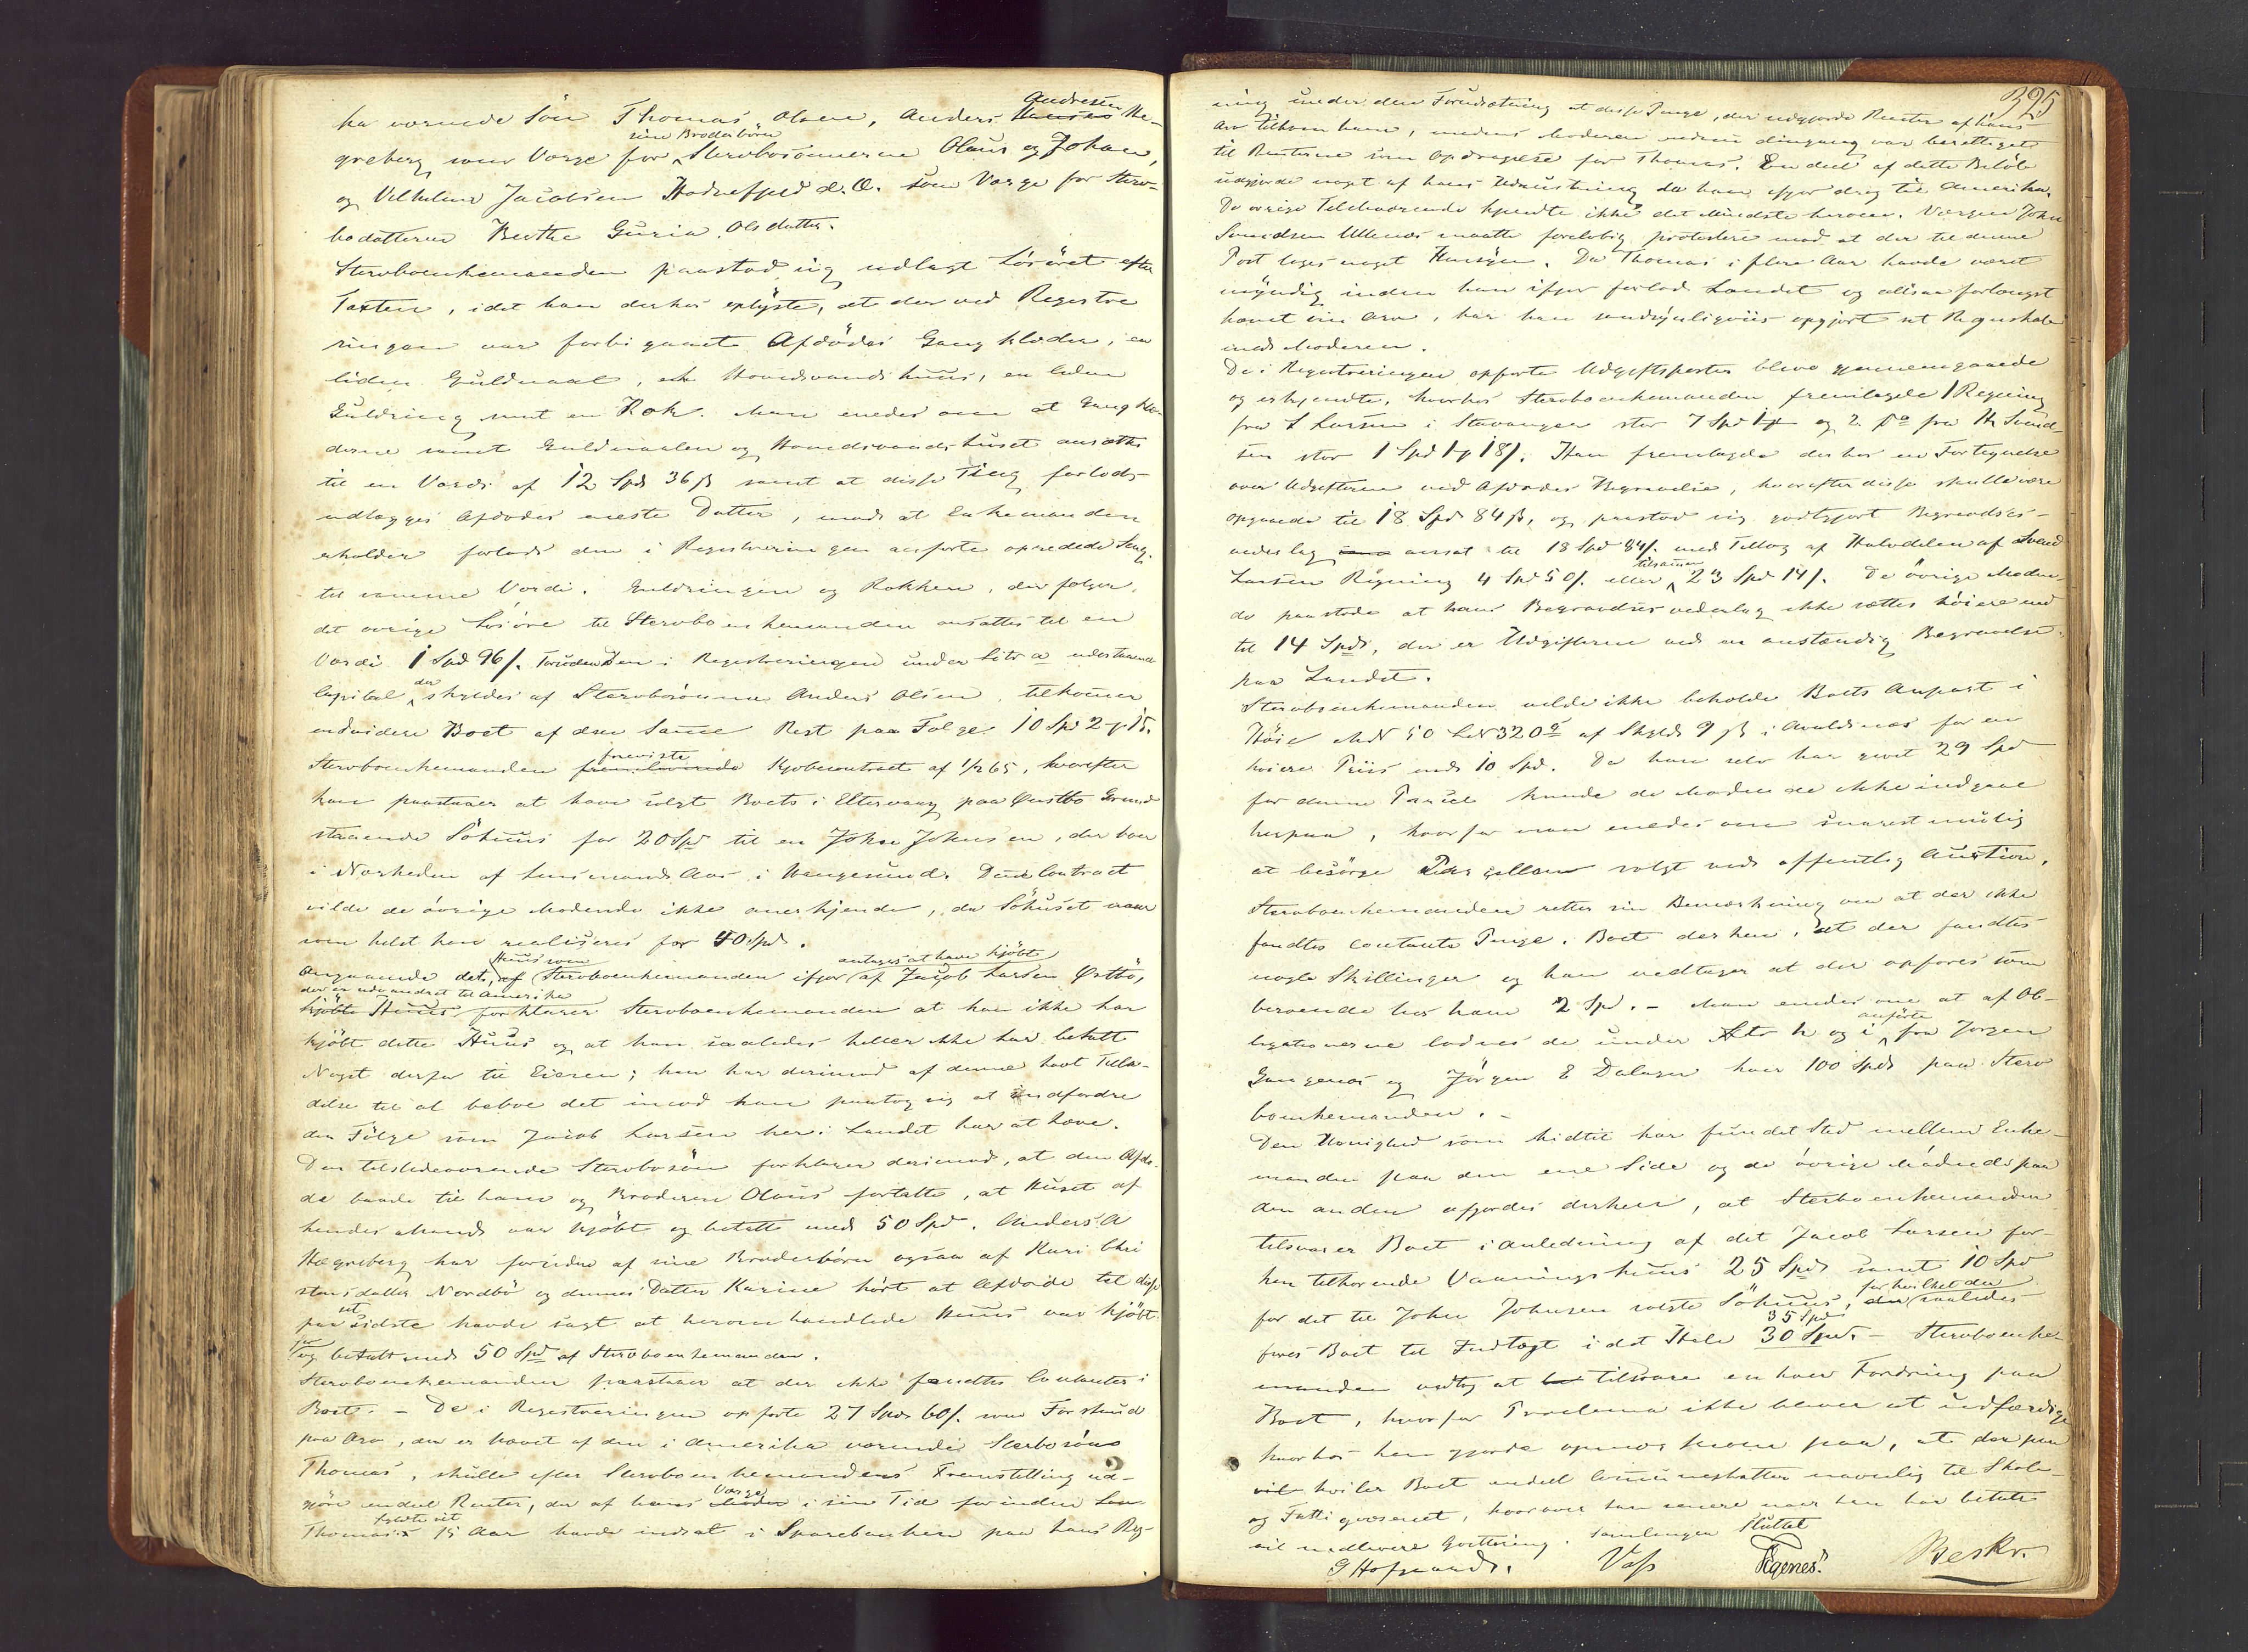 ka værende Søn Thomas Olsen, Anders <s>Hansen</s> Andresen Hæ-
greberg som Værge for sine Broderbørn Stervbosønnerne Olaus og Johan,
og Vilhelm Jacobsen Hodnefjeld d. O. som Værge for Sterv-
bodatteren Berthe Guria Olsdatter.
Stervboenkemanden paastod sig udlagt Løsøret efter
Taxten, idet han derhos oplyste, at der ved Registre
ringen var forbigaaet Afdødes Gangklæder, en
liden Guldnaal, et Hovedvandshuus, en liden
Guldring samt en Rok. Man enedes om at Gangklæ-
derne samt Guldnaalen og Hovedvandshuset ansættes
til en Værdi af 12 Spd 36 ß samt at disse Ting forlods
udlægges Afdødes eneste Datter, mod at Enkemanden
erholder forlods den i Registreringen anførte opredede Seng
til samme Værdi. Guldringen og Rokken, der følger
det øvrige Løsøre til Stervboenkemanden ansattes til en
Værdi 1 Spd 96 ß. Foruden Den i Registreringen under Litr a udestaaende
Capital, der skyldes af Stervbosønnen Anders Olsen, tilkommer
endvidere Boet af den Samme Rest paa Følge 10 Spd 2 # 15.
Stervboenkemanden <s>fremlævnede</s> foreviste Kjøbecontract af 1/2 65, hvorefter
han paastaaer at have solgt Boets i Eltervaag paa Østbø Grund
staaende Søhuus for 20 Spd til en John Johnsen, der boer
i Nærheden af Lensmand Aas i Haugesund. Denne Contract
vilde de øvrige Mødende ikke anerkjende, da Søhuset naar
som helst kan realiseres for 40 Spd.
Angaaende det Huus som <s>af</s> Stervboenkemanden ifjor antages at have kjøbt af Jacob Larsen Østbø,
der er udvandret til Amerika
<s>kjøbte Huus</s> forklarer Stervboenkemanden at han ikke har
kjøbt dette Huus og at han saaledes heller ikke har betalt
Noget derfor til Eieren; han har derimod af denne havt Tilla-
delse til at beboe det imod han paatog sig at indfordre
den Følge som Jacob Larsen her i Landet har at hæve.
Den tilstedeværende Stervbosøn forklarer derimod, at den Afdø-
de baade til ham og Broderen Olaus fortalte, at Huset af
hendes Mand var kjøbt og betalt med 50 Spd. Anders A
Hægreberg har foruden af sine Broderbørn ogsaa af Kari Chri
stensdatter Nordbø og dennes Datter Karine hørt at Afdøde til disse
paa sidste havde sagt at heromhandlede Huus var kjøbt
og betalt med 50 Spd af Stervboenkemanden.
Stervboenkemanden paastaaer at der ikke fandtes Contanter i
Boet. – De i Registreringen opførte 27 Spd 60 ß. som Forskud
paa Arv, der er hævet af den i Amerika værende Stervbosøn
Thomas, skulle efter Stervboenkemandens Fremstilling ud-
gjøre endeel Renter, der af hans Værge i sin Tid forinden
Thomas fyldte sit 15 Aar havde indsat i Sparebanken paa hans Reg-
395
ning under den Forudsætning at disse Penge, der udgjorde Renter af hans
Arv tilkom ham, medens Moderen var berettiget
til Renterne som Opdragelse for Thomas. En deel af dette Beløb
udgjorde noget af hans Udrustning da han ifjor drog til Amerika.
De øvrige Tilstedeværende kjendte ikke det Mindste herom. Værgen John
Svendsen Utlenæs maatte foreløbig protestere mod at der til denne
Post toges noget Hensyn. Da Thomas i flere Aar havde været
myndig inden han ifjor forlod Landet og altsaa forlængst
hævet sin Arv, har han sandsynligviis opgjort sit Regnskab
med Moderen.
De i Registreringen opførte Udgiftsposter bleve gjennemgaaede
og erkjendte, hvorhos Stervboenkemanden fremlagde 1 Regning
fra L Larsen i Stavanger stor 7 Spd 1 # og 2 do fra H. Svend-
sen stor 1 Spd 1 # 18 ß. Han fremlagde derhos en Fortegnelse
over Udgifterne ved Afdødes Begravelse, hvorefter disse skulle være
opgaaede til 18 Spd 84 ß, og paastod sig godtgjort Begravelses-
vederlag ansat til 18 Spd 84 ß. med Tillæg af Halvdelen af Svend
Larsen Regning 4 Spd 50 ß. eller tilsammen 23 Spd 14 ß. De øvrige Møden-
de paastode at hans Begravelsesvederlag ikke sættes høiere end
til 14 Spd, der er Udgifterne ved en anstændig Begravelse
paa Landet.
Stervboenkemanden vilde ikke beholde Boets Anpart i
Høie MN 50 LN 320 a af Skyld 9 ß i Avaldsnes for en
høiere Priis end 10 Spd. Da han selv har givet 29 Spd
for denne Parcel kunde de Mødende ikke indgaae
herpaa, hvorfor man enedes om snarest mulig
at besørge Parcellen solgt ved offentlig Auction.
Stervboenkemanden retter sin Bemærkning om at der ikke
fandtes contante Penge i Boet derhen, at der fandtes
nogle Skillinger og han vedtager at der opføres som
beroende hos ham 2 Spd. – Man enedes om at af Ob-
ligationerne lodnes de under Litr h og i anførte fra Jørgen
Gangenæs og Jørgen E Dalager hver 100 Spd paa Sterv
boenkemanden. –
Den Uenighed som hidtil har fundet Sted mellem Enke-
manden paa den ene Side og de øvrige Mødende paa
den anden afgjordes derhen, at Stervboenkemanden
tilsvarer Boet i Anledning af det Jacob Larsen for-
hen tilhørende Vaaningshuus 25 Spd samt 10 Spd
for det til John Johnsen solgte Søhuus, <s>der</s> for hvilket der saaledes
føres Boet til Indtægt i det Hele 35 Spd <s>30 Spd</s>. – Stervboenke
manden vedtog at tilsvare enhver Fordring paa
Boet, hvorfor Proclama ikke bliver at udfærdige
hvorhos han gjorde opmærksom paa, at der paa
<s>vil</s> hviler Boet endeel Communeskatter navnlig til Skole-
og Fattigvæsenet, hvorover han senere naar han har betalt
vil meddele Qvittering. Samlingen sluttet
G Hofgaard. Vass Ægenes. Beskr.